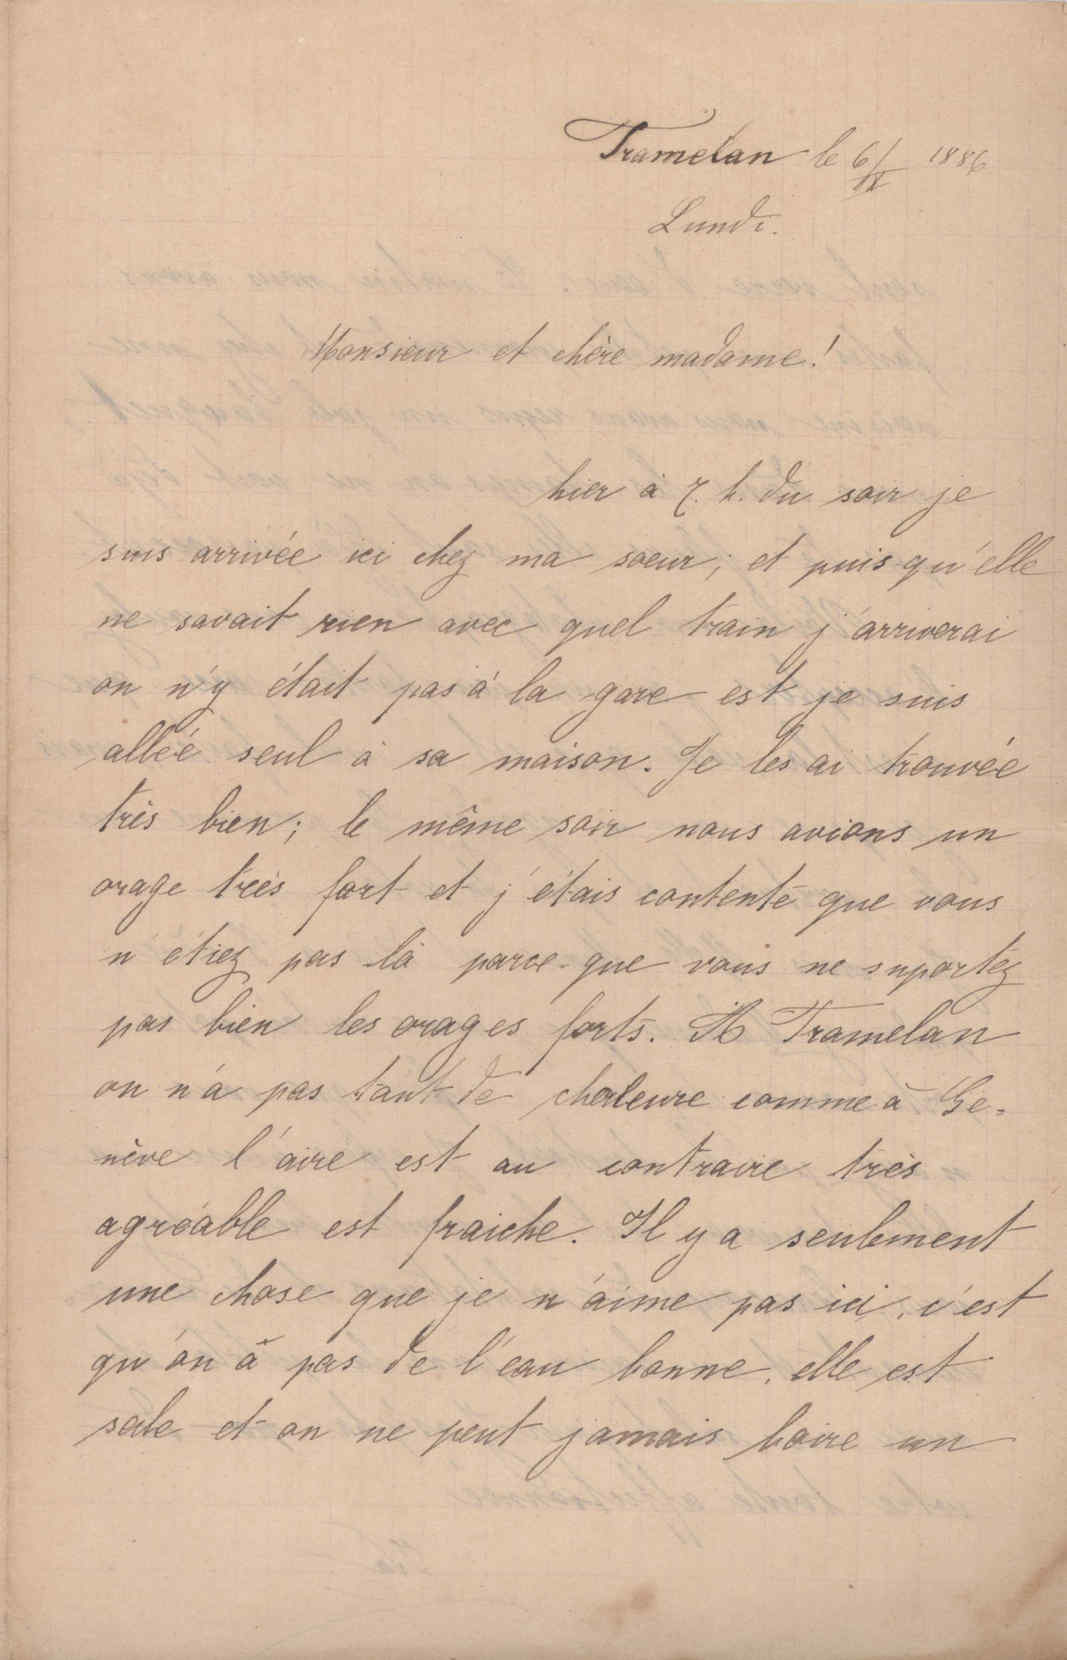 Tramelan le 6/IX 1886
Lundi.
Monsieur et chère madame!
hier à 7. h. du soir je
suis arrivée ici chez ma soeur; et puis-qu'elle
ne savait rien avec quel train j'arriverai
on n'y était pas à la gare est je suis
alleé seul à sa maison. Je les ai trouvée
très bien; le même soir nous avions un
orage très fort et j'étais contente que vous
n'étiez pas là parce-que vous ne suportez
pas bien les orages forts. A Tramelan
on n'a pas tant de chaleure comme à Ge-
nève l'aire est au contraire très
agréable est fraiche. Il y a seulement
une chose que je n'aime pas ici, c'est
qu'on à pas de l'eau bonne, elle est
sale et on ne peut jamais boire un